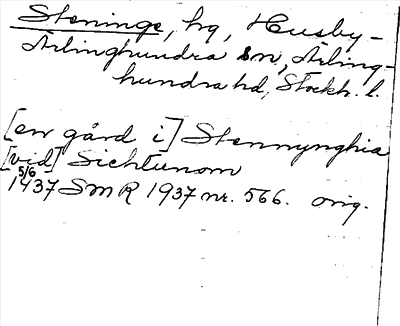 Steninge, hg, Husby-
Ärlinghundra sn, Ärling-
hundra hd, Stockh. l.
[en gård i] Stennynghia
[vid] Sichtunom
5/6
1437 SMR 1937 nr. 566. orig.